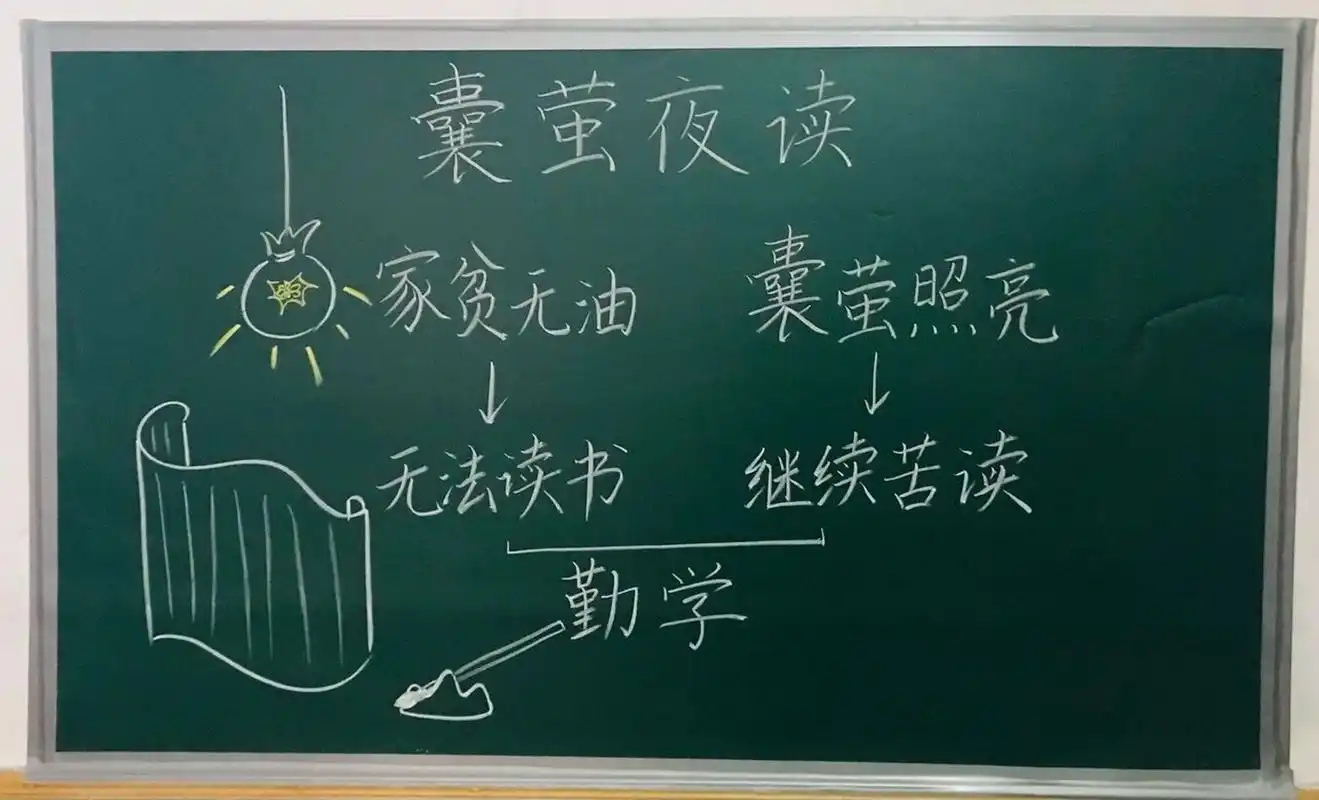 囊萤夜读
家贫无油 囊萤照亮
无法读书 继续苦读
勤学